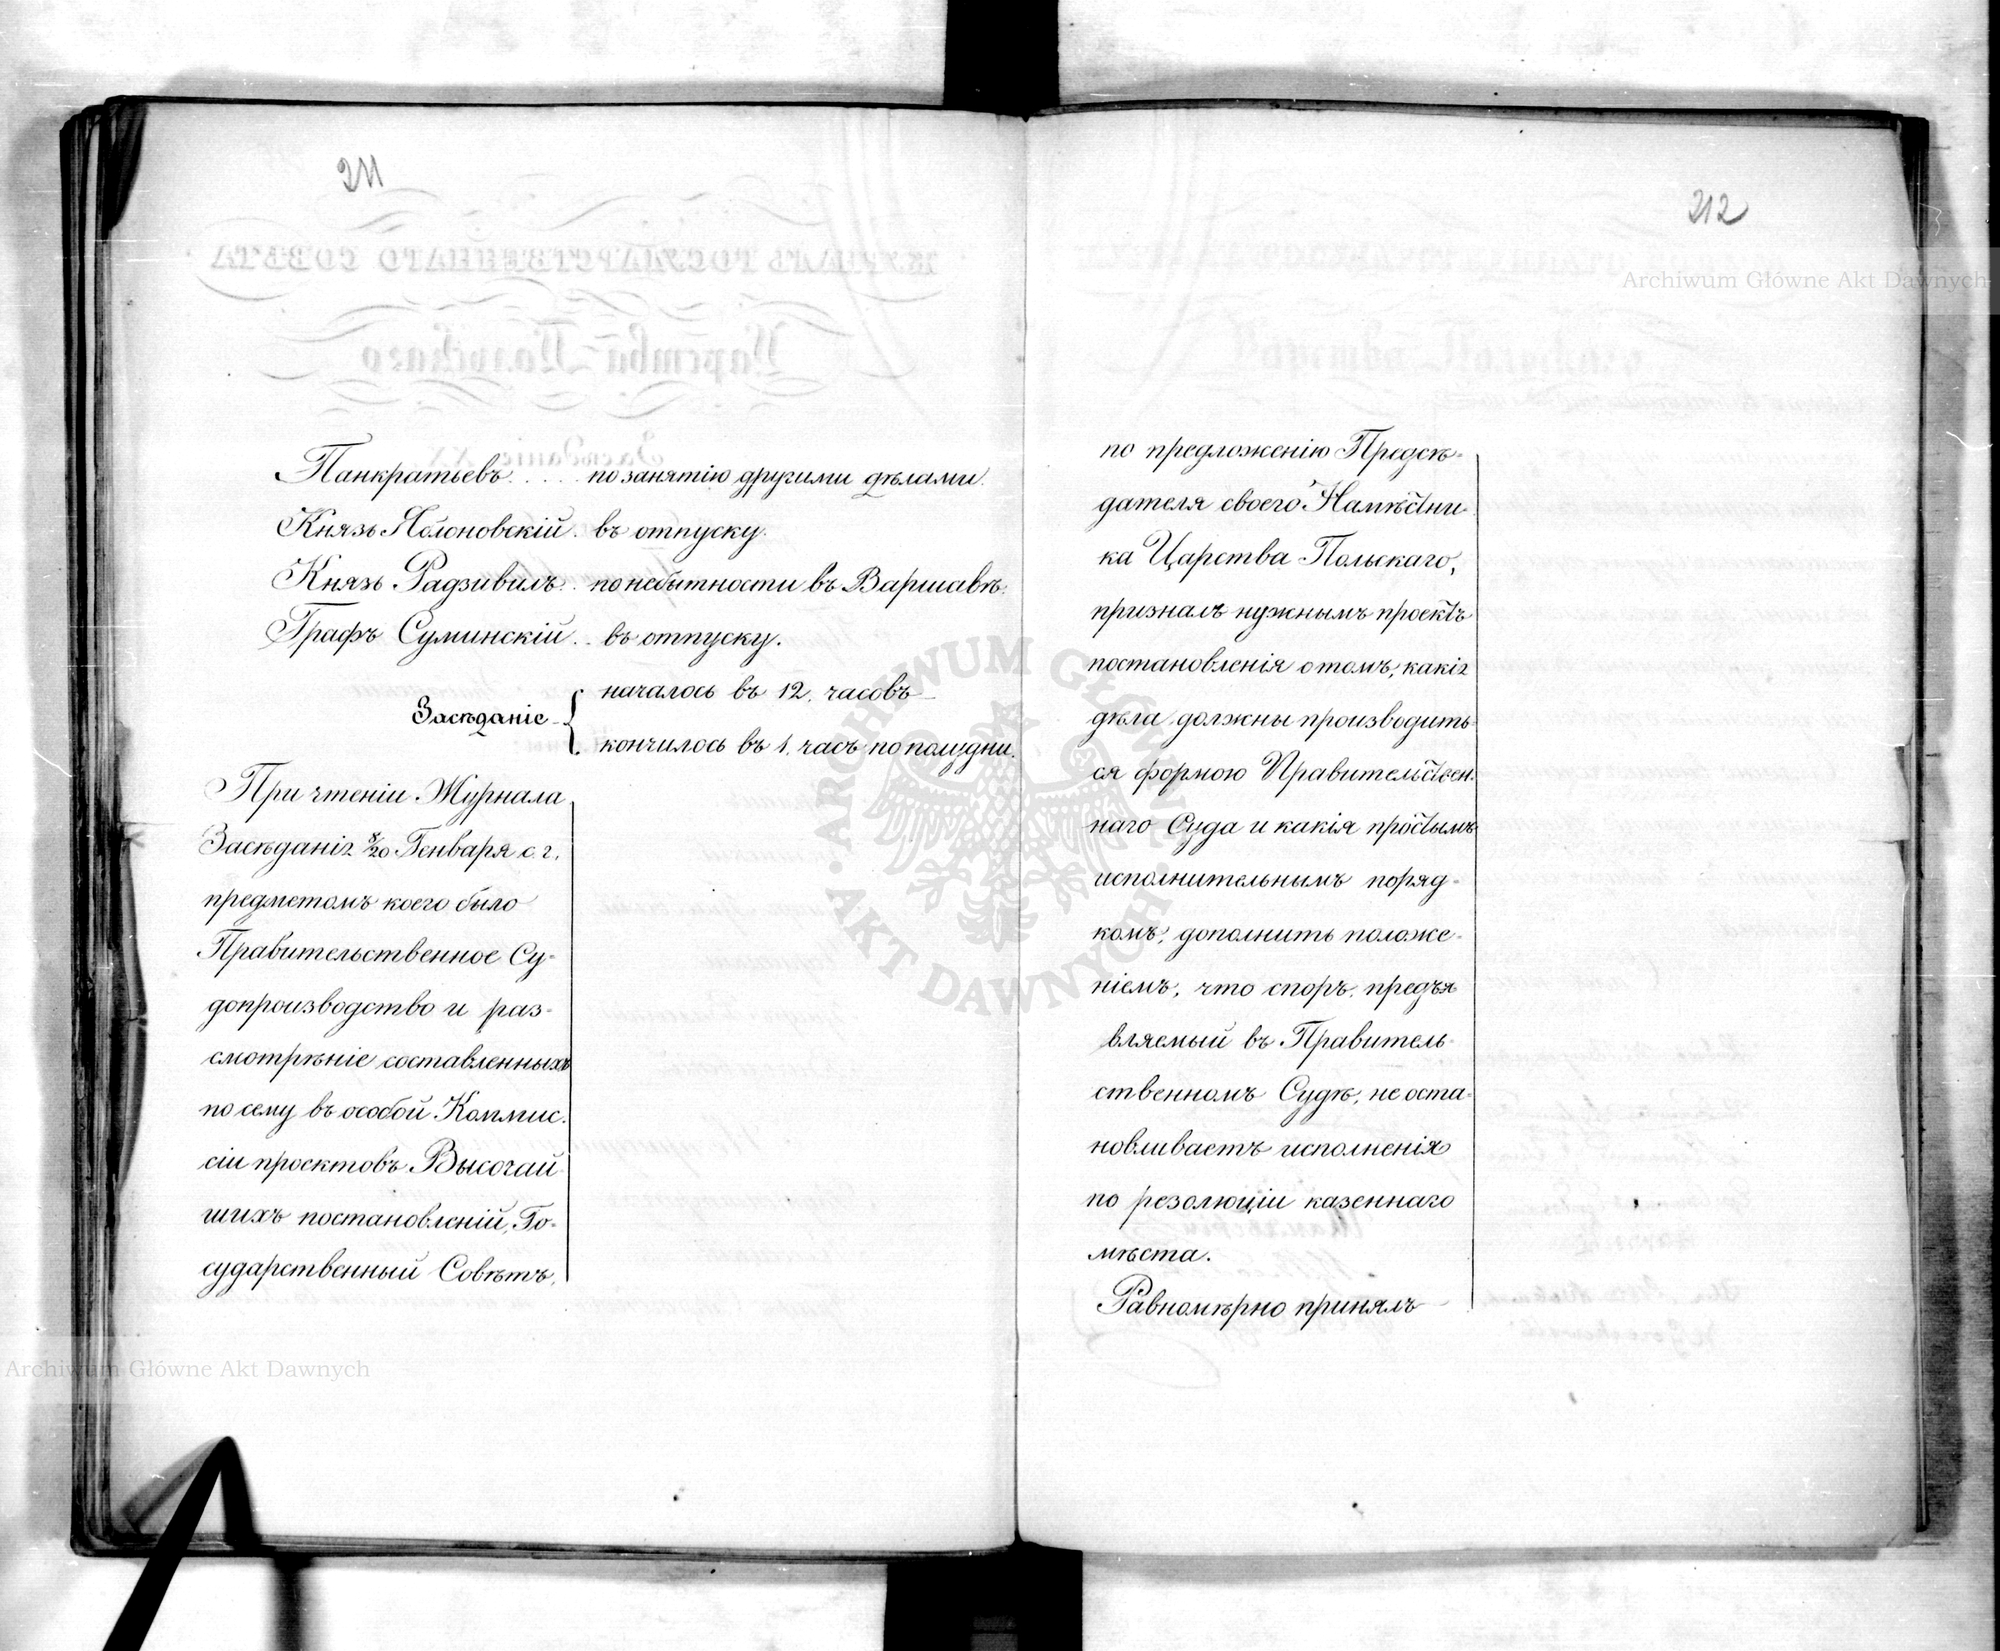 211
Панкратьевъ . . . . по занятію другими дѣлами.
Князь Яблоновскій . въ отпуску.
Князь Радзивилъ . . по небытности въ Варшавѣ.
Графъ Суминскій . . въ отпуску.
Засѣданіе { началось въ 12. часовъ
кончилось въ 1. часъ по полудни.
При чтеніи Журнала
Засѣданія 8/20 Генваря с. г.
предметомъ коего было
Правительственное Су-
допроизводство и раз-
смотрѣніе составленныхъ
по сему въ особой Коммис-
сіи проектовъ Высочай
шихъ постановленій, Го-
сударственный Совѣтъ,
212
по предложенію Предсѣ-
дателя своего Намѣстни-
ка Царства Польскаго,
призналъ нужнымъ проектъ
постановленія о томъ, какія
дѣла должны производить-
ся формою Правительствен-
наго Суда и какія простымъ
исполнительнымъ поряд-
комъ, дополнить положе-
ніемъ, что споръ, предъя
вляемый въ Правитель-
ственномъ Судѣ, не оста-
новливаетъ исполненія
по резолюціи казеннаго
мѣста.
Равномѣрно принялъ
Archiwum Główne Akt Dawnych
Archiwum Główne Akt Dawnych
ARCHIWUM GŁÓWNE AKT DAWNYCH